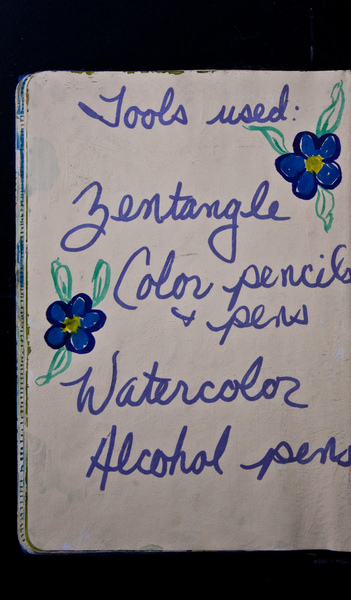 Tools used:
Zentangle
Color pencils
& pens
Watercolor
Alcohol pens